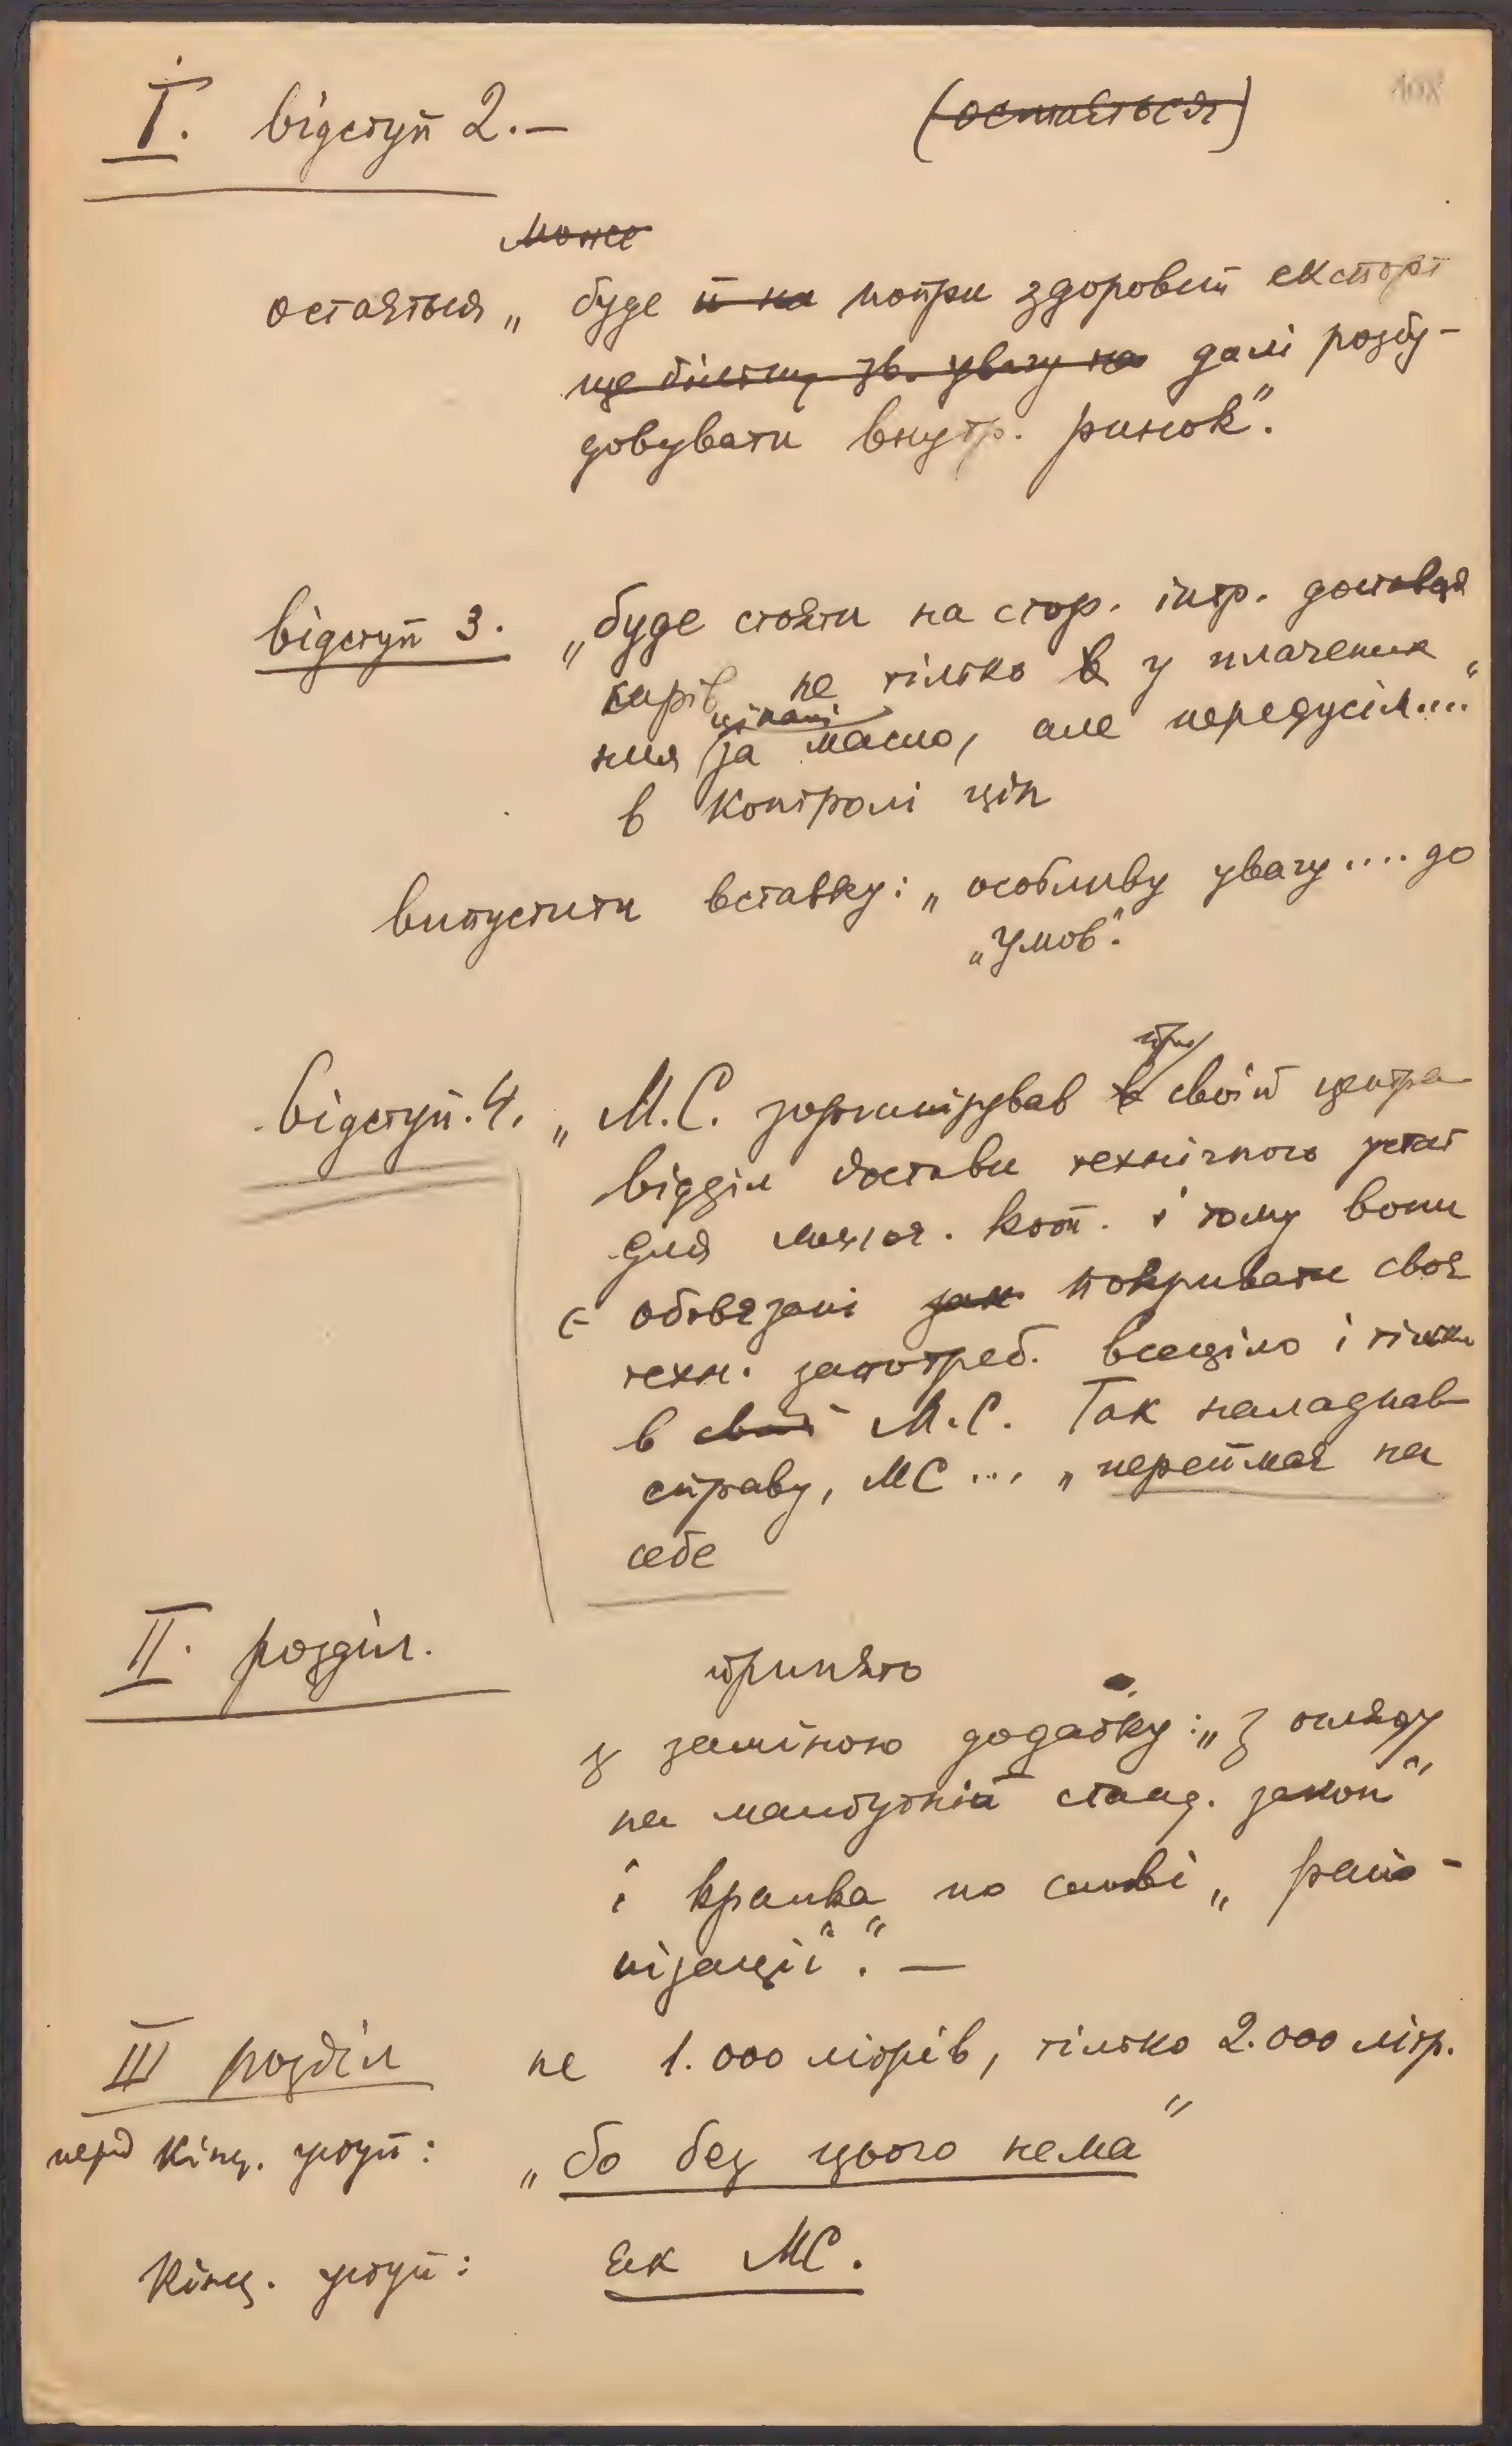 І. відступ 2.— (остається)
може
остається „ буде й на попри здоровий експорт
ще більшу зв. увагу на далі розбу-
довувати внутр. ринок".
відступ 3. „буде стояти на стор. інтр. достав
карів не тільки в у плачених
цінами
ння за масло, але передусім...."
в контролі цін
випустити вставку: „особливу увагу .... до
„умов".
при
відступ. 4. „М.С. зорганізував в своїй центра
відділ достави технічного устат
для молоч. кооп. і тому вони
обовязані зак покривати своє
техн. запотреб. всеціло і тільки
в свої М.С. Так наладнав
справу, МС ... „переймає на
себе
ІІ. розділ.
принято
з заміною додатку: „З огляду
на майбутній станд. закон"
і крапка по слові „райо-
нізації". —
ІІІ розділ не 1.000 літрів, тілько 2.000 літр.
перед кінц. уступ: „бо без цього нема"
Кінц. уступ: як МС.